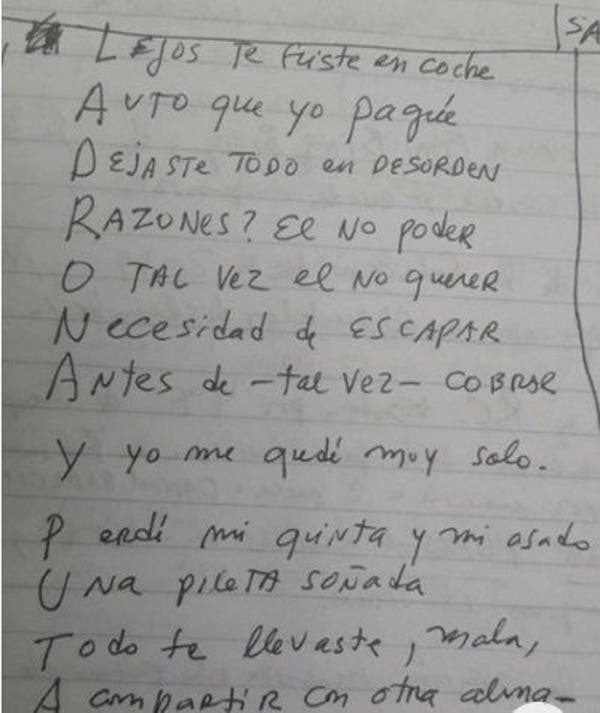 SA
LEJOS TE fuiste en coche
AUTO que yo pagué
DEJASTE TODO en DESORDEN
RAZONES? El NO PODER
O TAL VEZ el NO QUERER
NECESIDAD de ESCAPAR
ANTES de - tal VEZ - COBRAR
Y yo me quedé muy solo.
Perdí mi quinta y mi asado
UNA PILETA SOÑADA
Todo te llevaste, mala,
A compartir con otra alma-